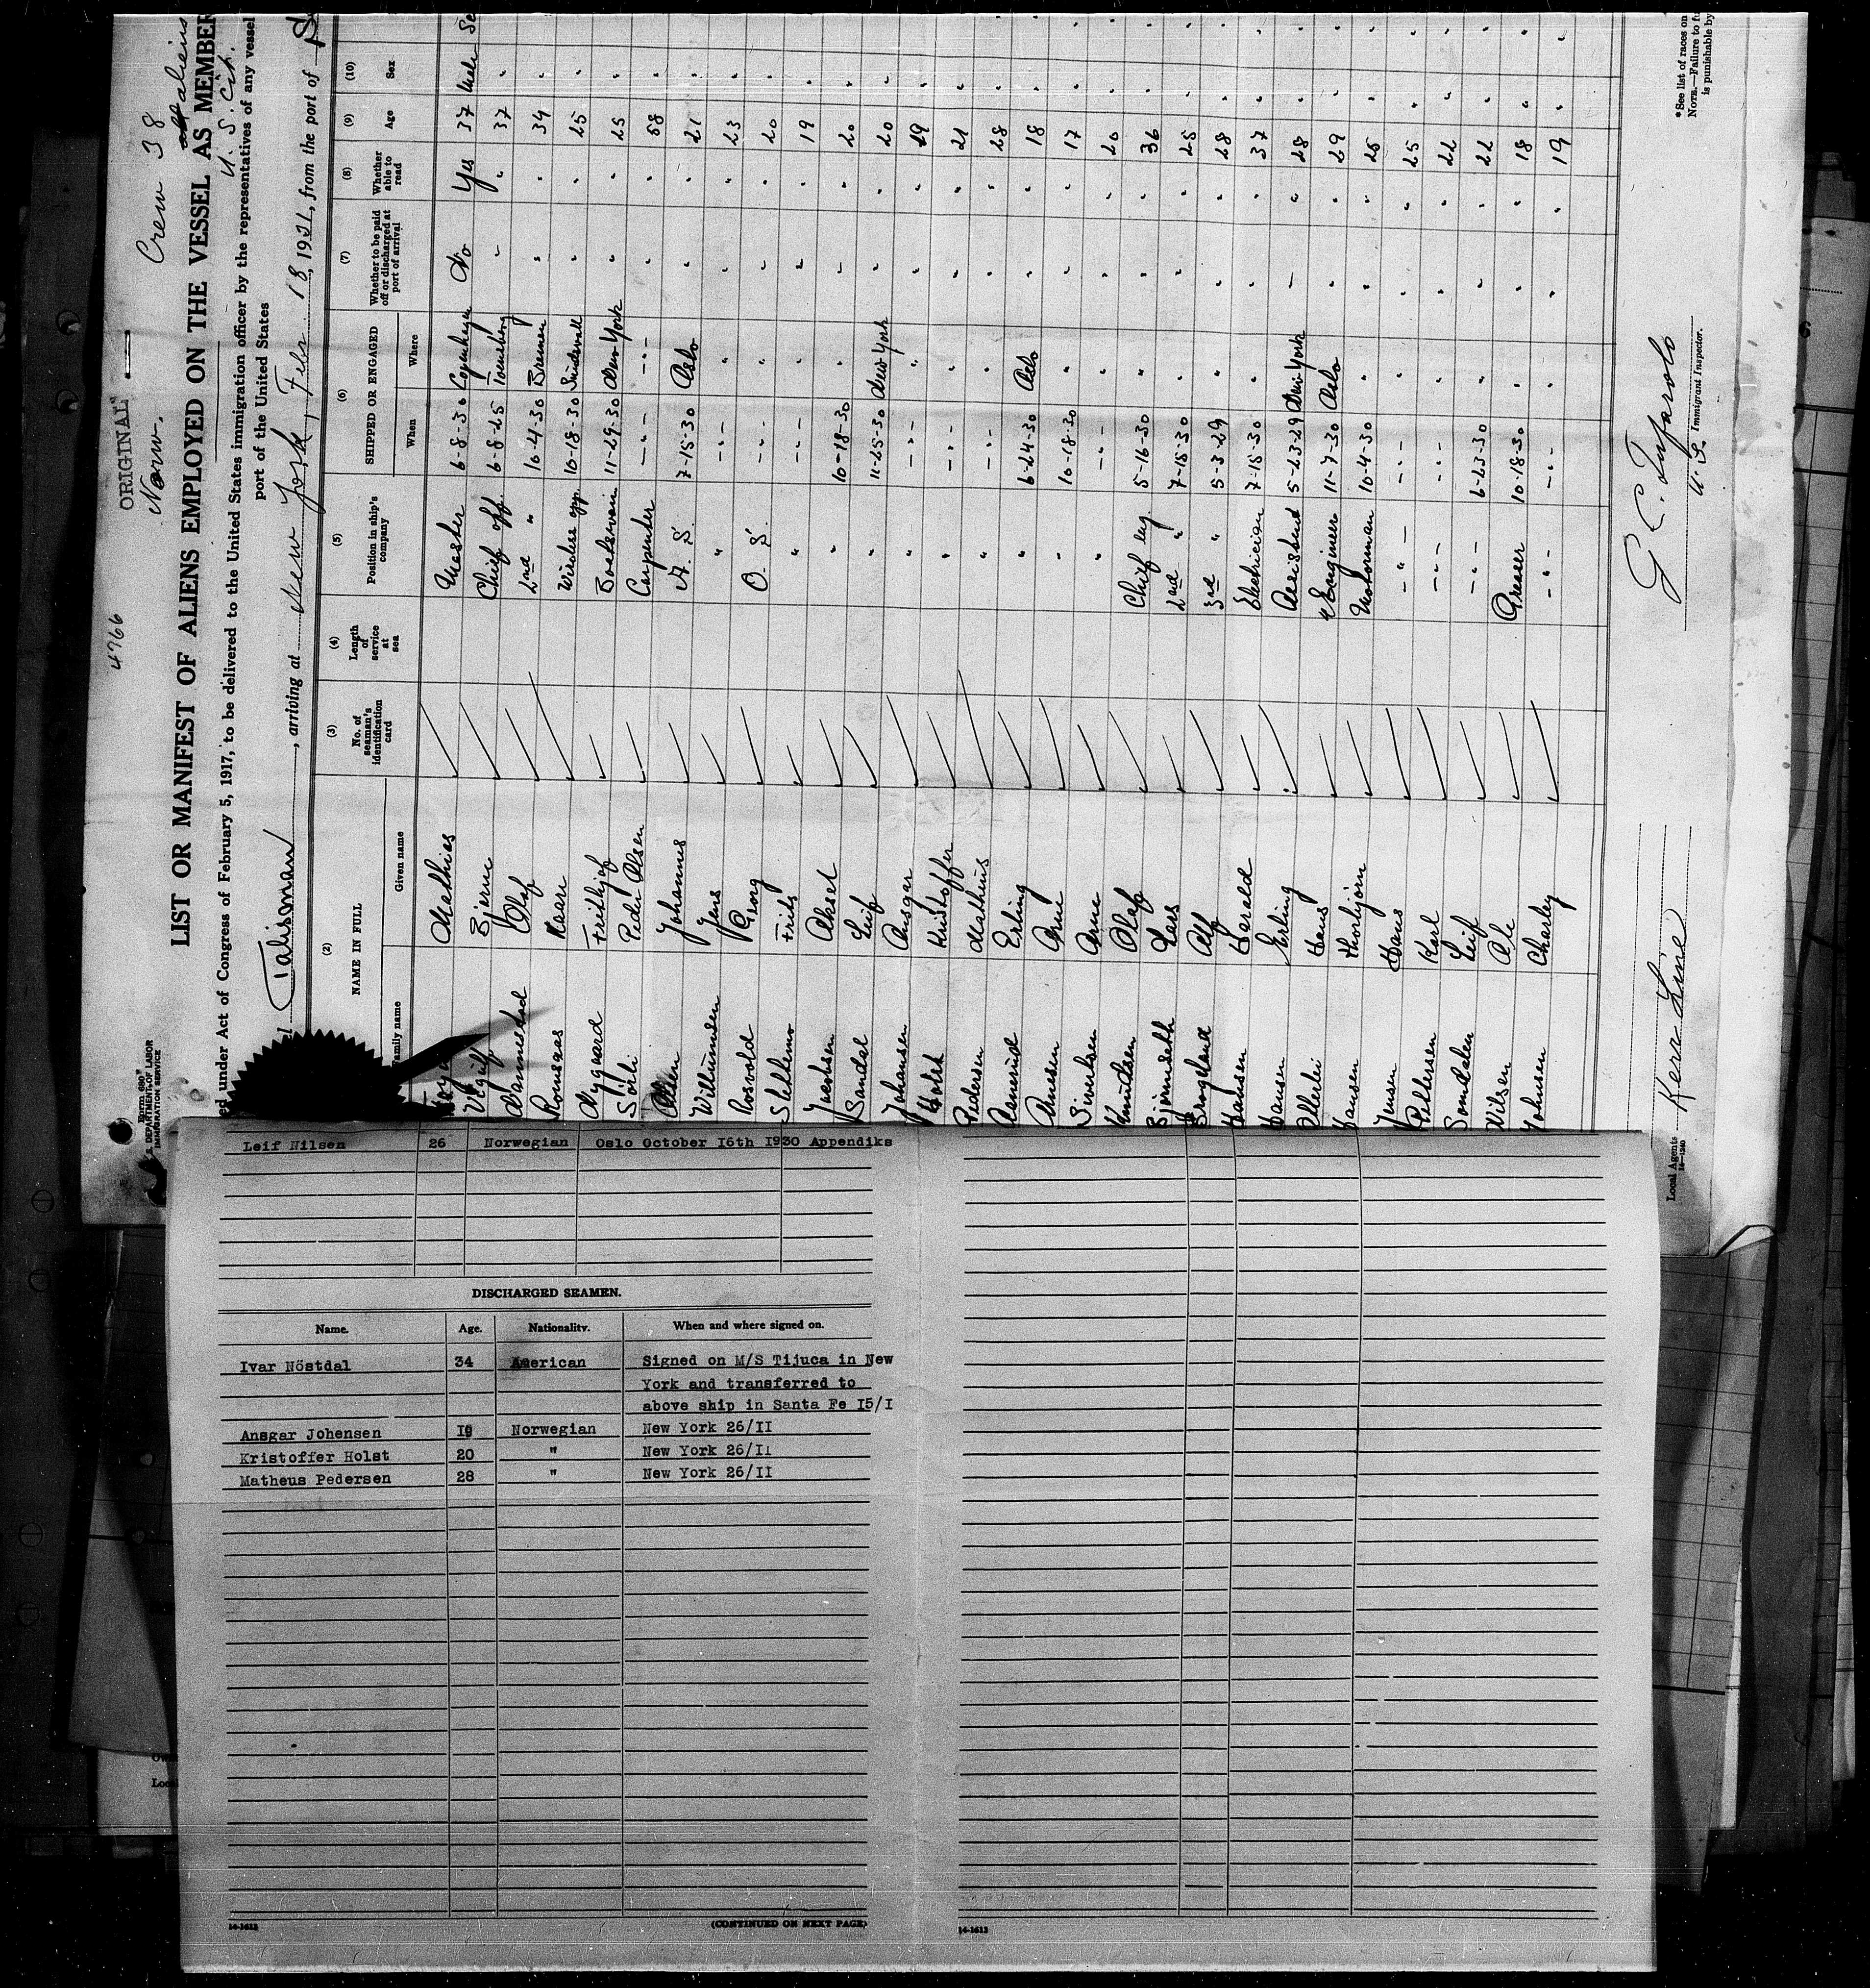 4766
ORIGINAL
Norw.
Crew 38
LIST OR MANIFEST OF ALIENS EMPLOYED ON THE VESSEL AS MEMBER
all aliens
U. S. Cit.
ed under Act of Congress of February 5, 1917, to be delivered to the United States immigration officer by the representatives of any vessel
port of the United States
Talisman, arriving at New York, Febr. 18, 1931, from the port of
(2) (3) (4) (5) (6) (7) (8) (9) (10)
NAME IN FULL
Family name Given name
No. of seaman's identification card
Length of service at sea
Position in ship's company
SHIPPED OR ENGAGED
When Where
Whether to be paid off or discharged at port of arrival
Whether able to read
Age
Sex
Mathias Master 6-8-30 Copenhagen No Yes 37 Male
Bjerne Chief off. 6-8-25 Tonsberg " " 37 "
Olaf 2nd " 10-4-30 Bremen " " 34 "
Romsaas Kaare Wireless opp. 10-18-30 Sundsvall " " 25 "
Nygaard Frithjof Boatswain 11-29-30 New York " " 25 "
Sörli Peder Olsen Carpenter -"- -"- " " 58 "
Olsen Johannes A. S. 7-15-30 Oslo " " 21 "
Willumsen Jens " -"- " " " 23 "
Rosvold Georg O. S. -"- " " " 20 "
Slettemo Frits " -"- " " " 19 "
Jacobsen Aksel " 10-18-30 " " " 20 "
Sandal Leif " 11-25-30 New York " " 20 "
Johansen Ansgar " -"- " " " 19 "
Holst Kristoffer " -"- " " " 21 "
Pedersen Matheus " -"- " " " 28 "
Aamerud Erling " 6-24-30 Oslo " " 18 "
Arnesen Arne " 10-18-30 " " " 17 "
Siverthsen Arne " -"- " " " 20 "
Knudsen Olaf Chief eng. 5-16-30 " " " 36 "
Björnseth Lars 2nd " 7-15-30 " " " 25 "
Brongeland Alf 3rd " 5-3-29 " " " 28 "
Hansen Harald Electrician 7-15-30 " " " 37 "
Hansen Erling Assistend 5-23-29 New York " " 28 "
Ellerlei Hans Engineer 11-7-30 Oslo " " 29 "
Hansen Thorbjorn Motorman 10-4-30 " " " 25 "
Jensen Hans -"- -"- " " " 25 "
Pettersen Karl -"- -"- " " " 22 "
Somdalen Leif -"- 6-23-30 " " " 22 "
Nilsen Ole Greaser 10-18-30 " " " 18 "
Johnsen Charley -"- -"- " " " 19 "
Local Agents Kerr Line
14-1240
U. S. Immigrant Inspector.
*See list of races on
NOTE.—Failure to fu
is punishable by
Form 680
S. DEPARTMENT OF LABOR
IMMIGRATION SERVICE
Leif Nilsen 26 Norwegian Oslo October 16th 1930 Appendiks
DISCHARGED SEAMEN.
Name. Age. Nationality. When and where signed on.
Ivar Nöstdal 34 American Signed on M/S Tijuca in New
York and transferred to
above ship in Santa Fe I5/I
Ansgar Johensen 19 Norwegian New York 26/II
Kristoffer Holst 20 " New York 26/II
Matheus Pedersen 28 " New York 26/II
14-1613
(CONTINUED ON NEXT PAGE)
14-1613